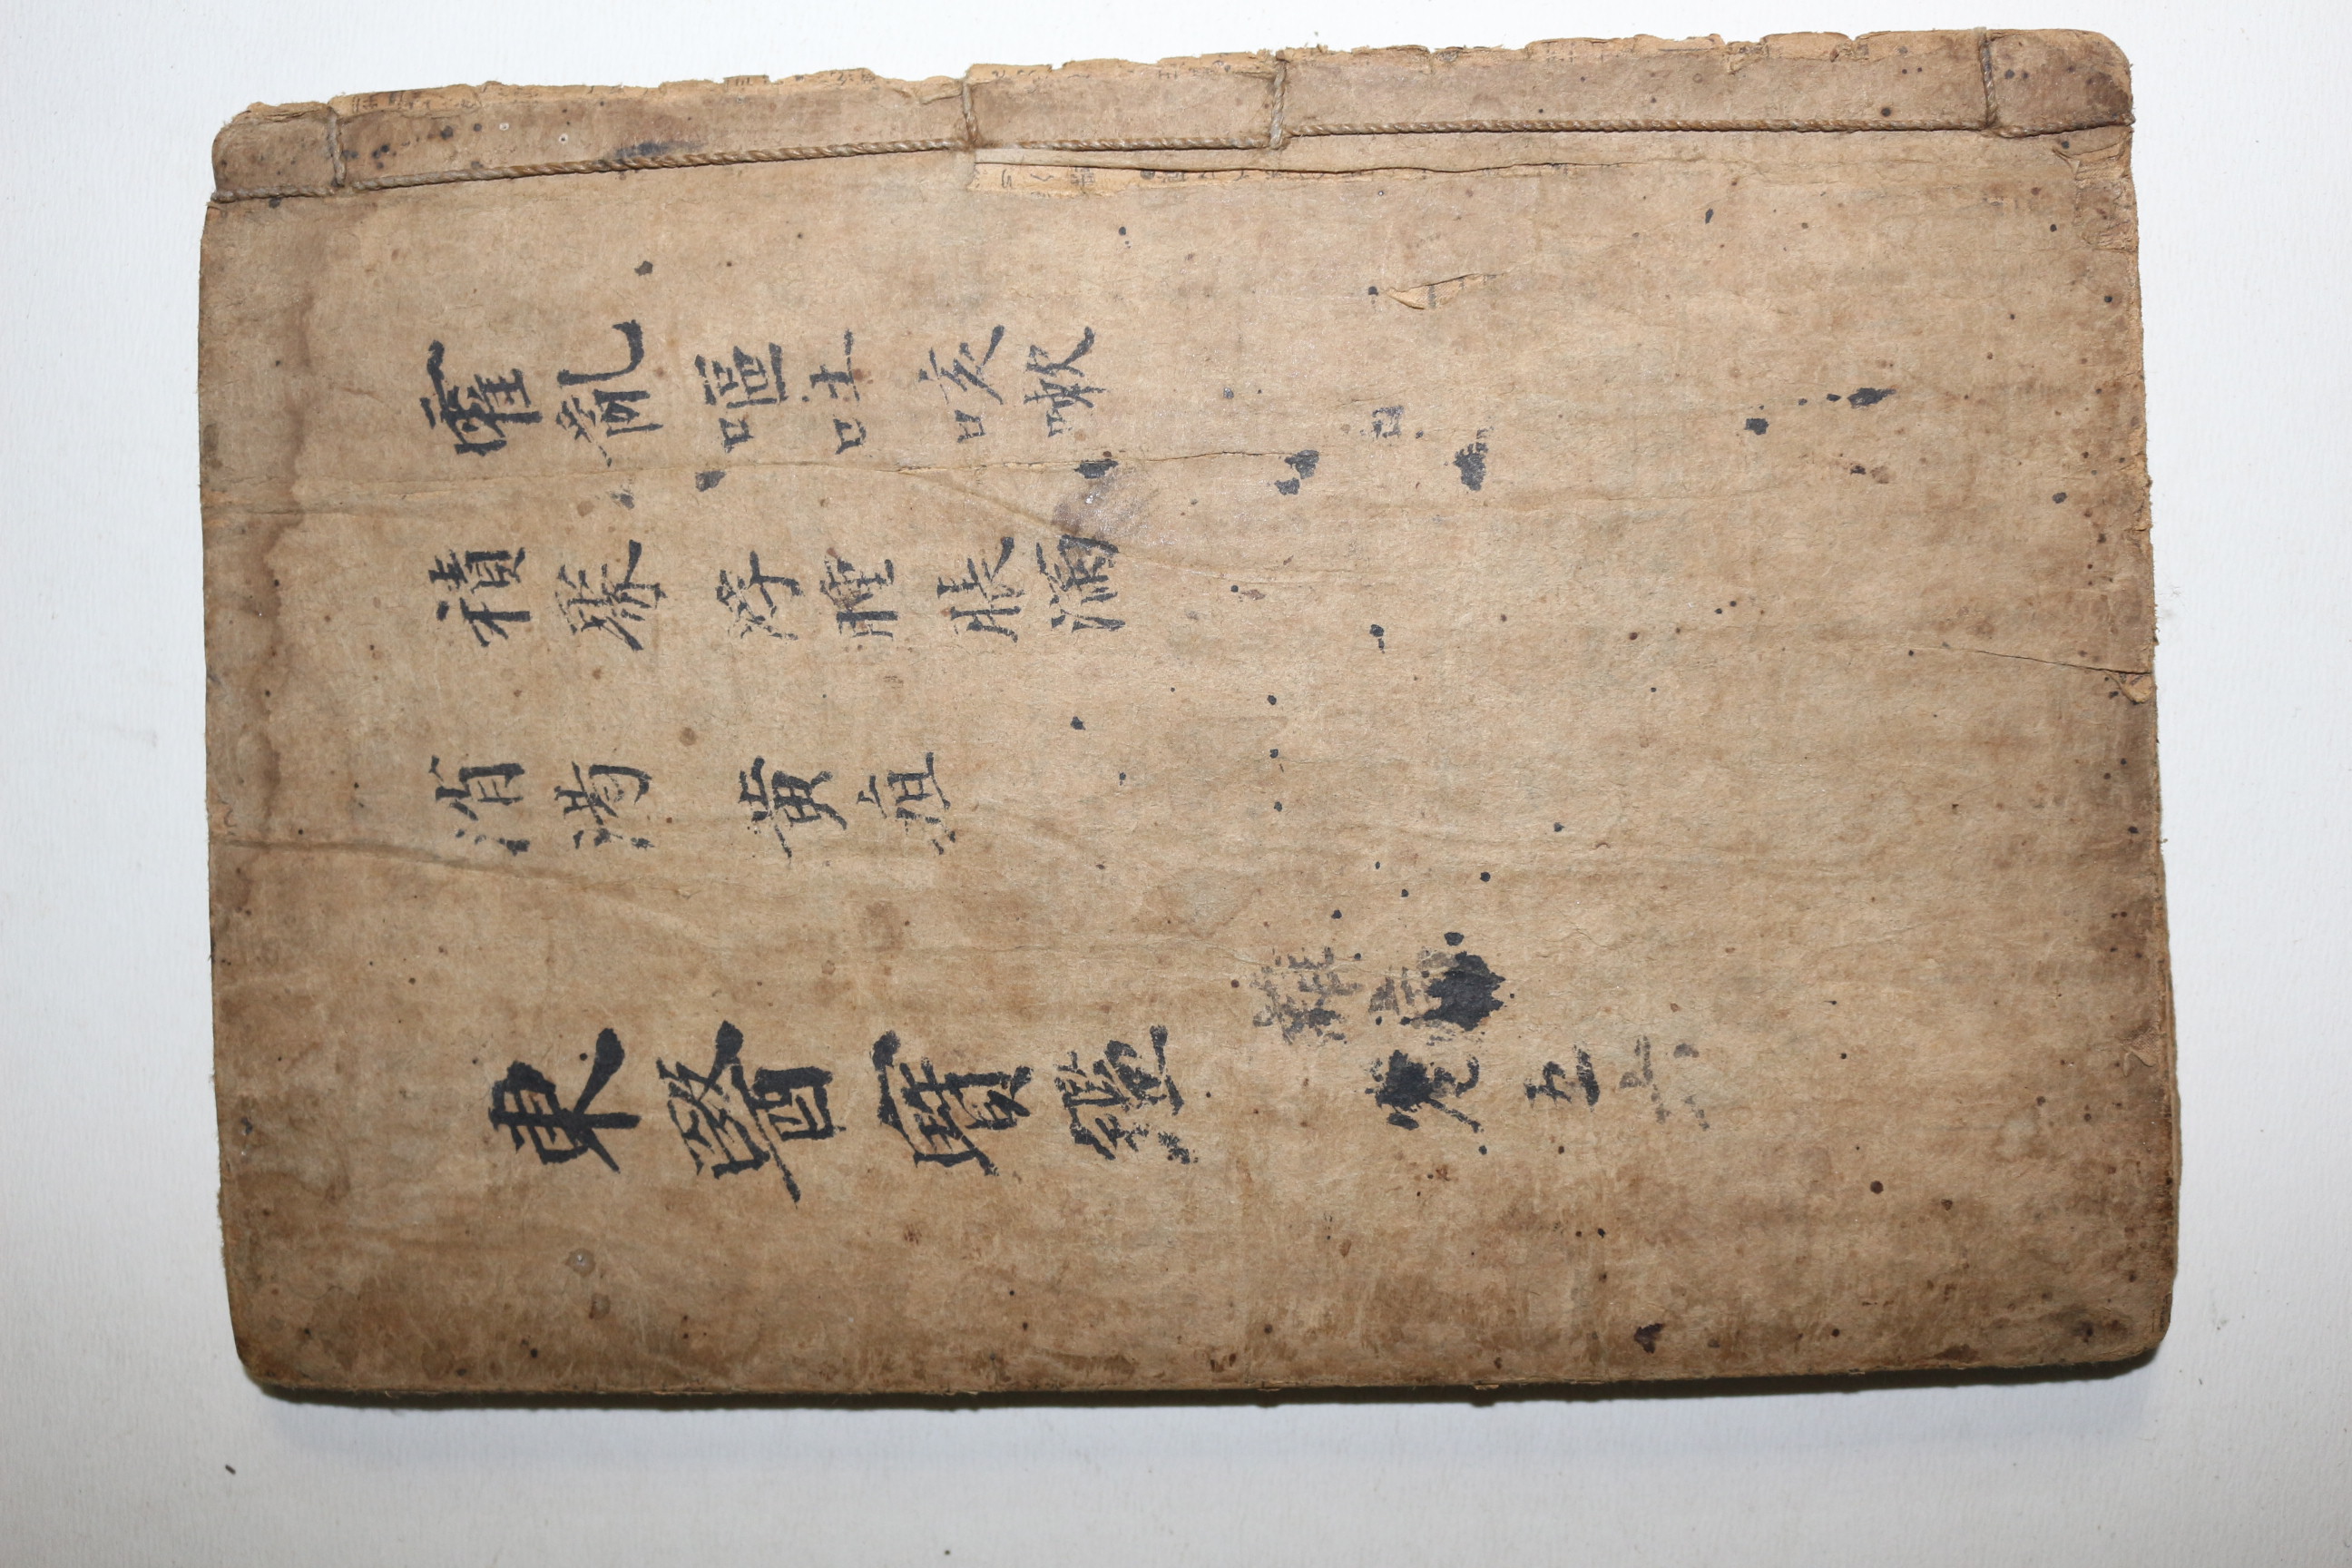 霍亂 嘔吐 咳嗽
積聚 浮腫 脹滿
消渴 黃疸
東醫寶鑑 雜病 卷五六